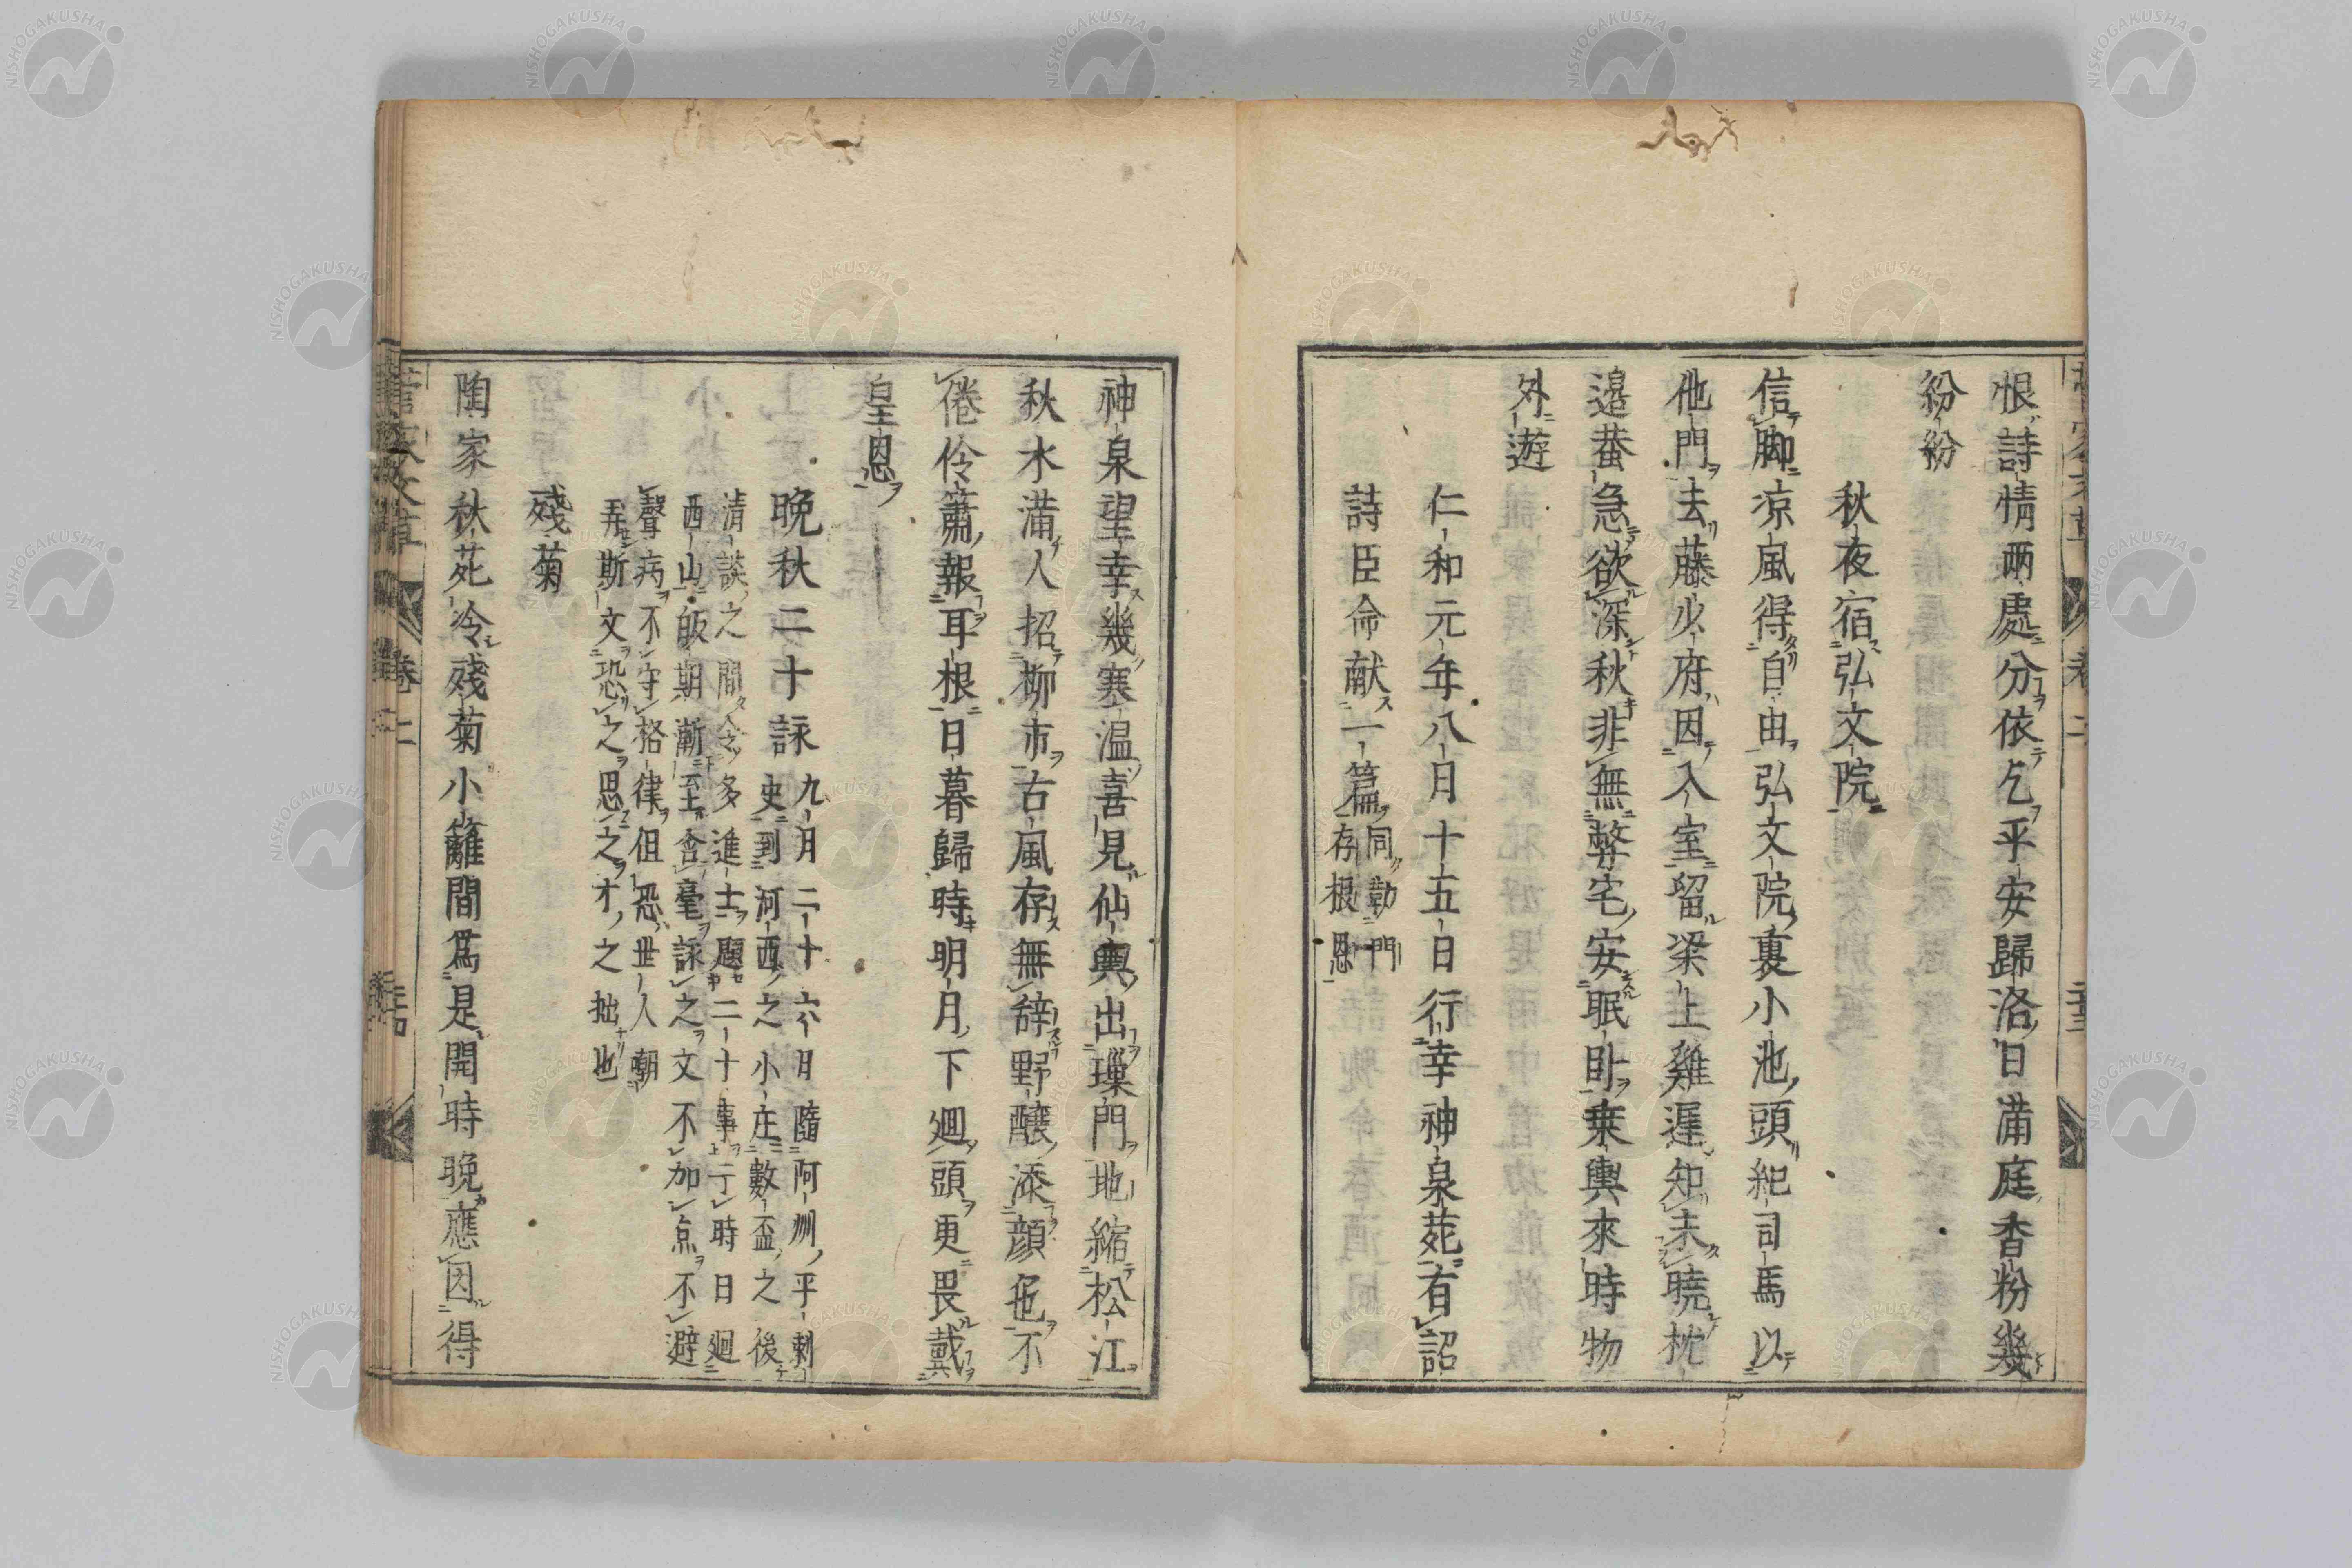 恨詩情兩處分依乞平安歸洛日滿庭香粉幾
紛紛
秋夜宿弘文院
信脚涼風得自由弘文院裏小池頭紀司馬以
他門去藤少府因入室留梁上雞遲知未曉枕
邊蛬急欲深秋非無弊宅安眠臥乗輿來時物
外遊
仁和元年八月十五日行幸神泉苑有詔
詩臣命献一篇
同勒門
存根恩
神泉望幸幾寒温喜見仙輿出璅門地縮松江
秋水滿人招柳市古風存無辞野釀添顔色不
倦伶簫報耳根日暮歸時明月下廻頭更畏戴
皇恩
晩秋二十詠
九月二十六日隨阿州平刺
史到河西之小庄數盃之後
清談之間令多進士題二十事于時日廻
西山皈期漸至含毫詠之文不加点不避
聲病不守格律但恐世人嘲
弄斯文恐之思之才之拙也
殘菊
陶家秋苑冷殘菊小籬間爲是開時晩應因得
菅家文草
卷二
NISHOGAKUSHA